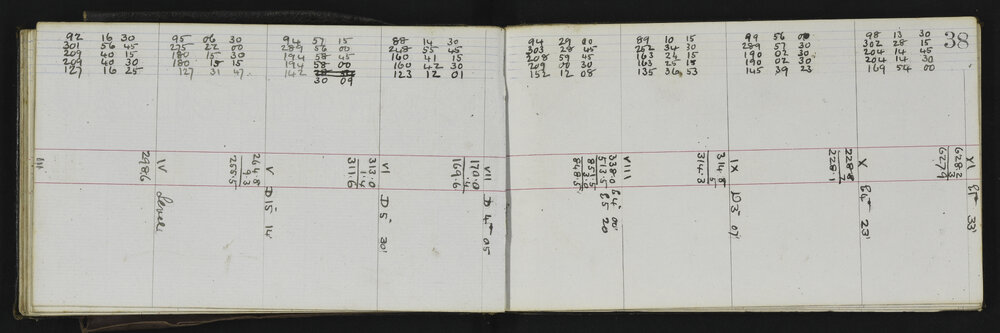 92 16 30
301 56 45
209 40 15
209 40 30
127 16 25
95 06 30
275 22 00
180 15 30
180 15 15
127 31 47
94 57 15
289 56 00
194 58 45
194 58 00
142
30 09
88 14 30
248 55 45
160 41 15
160 42 30
123 12 01
94 29 00
303 28 45
208 59 45
209 00 30
152 12 08
89 10 15
252 34 30
163 24 15
163 25 15
135 36 53
99 56 00
289 57 30
190 02 30
190 02 30
145 39 23
98 13 30
302 28 15
204 14 45
204 14 30
169 54 00
38
III
298.6
IV
Level
264.8
9.3
255.5
V
D 15° 14'
313.0
1.4
311.6
VI
D 5° 30'
170.0
.4
169.6
VII
D 4° 05
338.0
513.5
853.5
848.5
VIII
E 4° 00'
E 5 20
314.8
.5
314.3
IX
D 3° 07'
228.8
.7
228.1
X
E 4° 23'
628.2
.3
627.9
XI
E 1° 33'